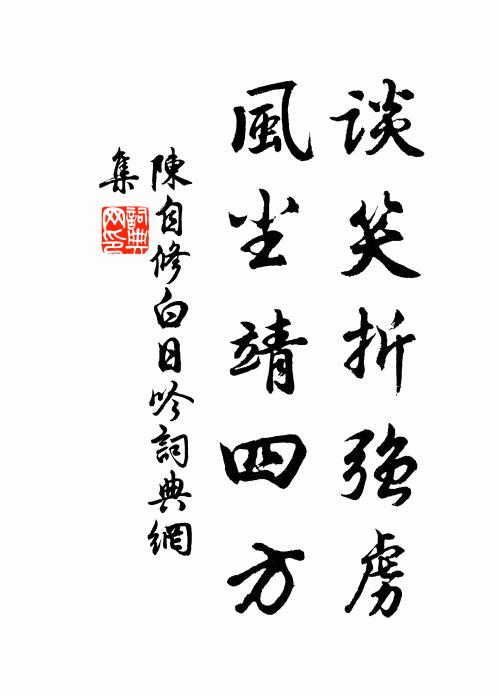 谈笑折強虜
風尘靖四方
陳自修白日吟詞典網
集
詞典
网印